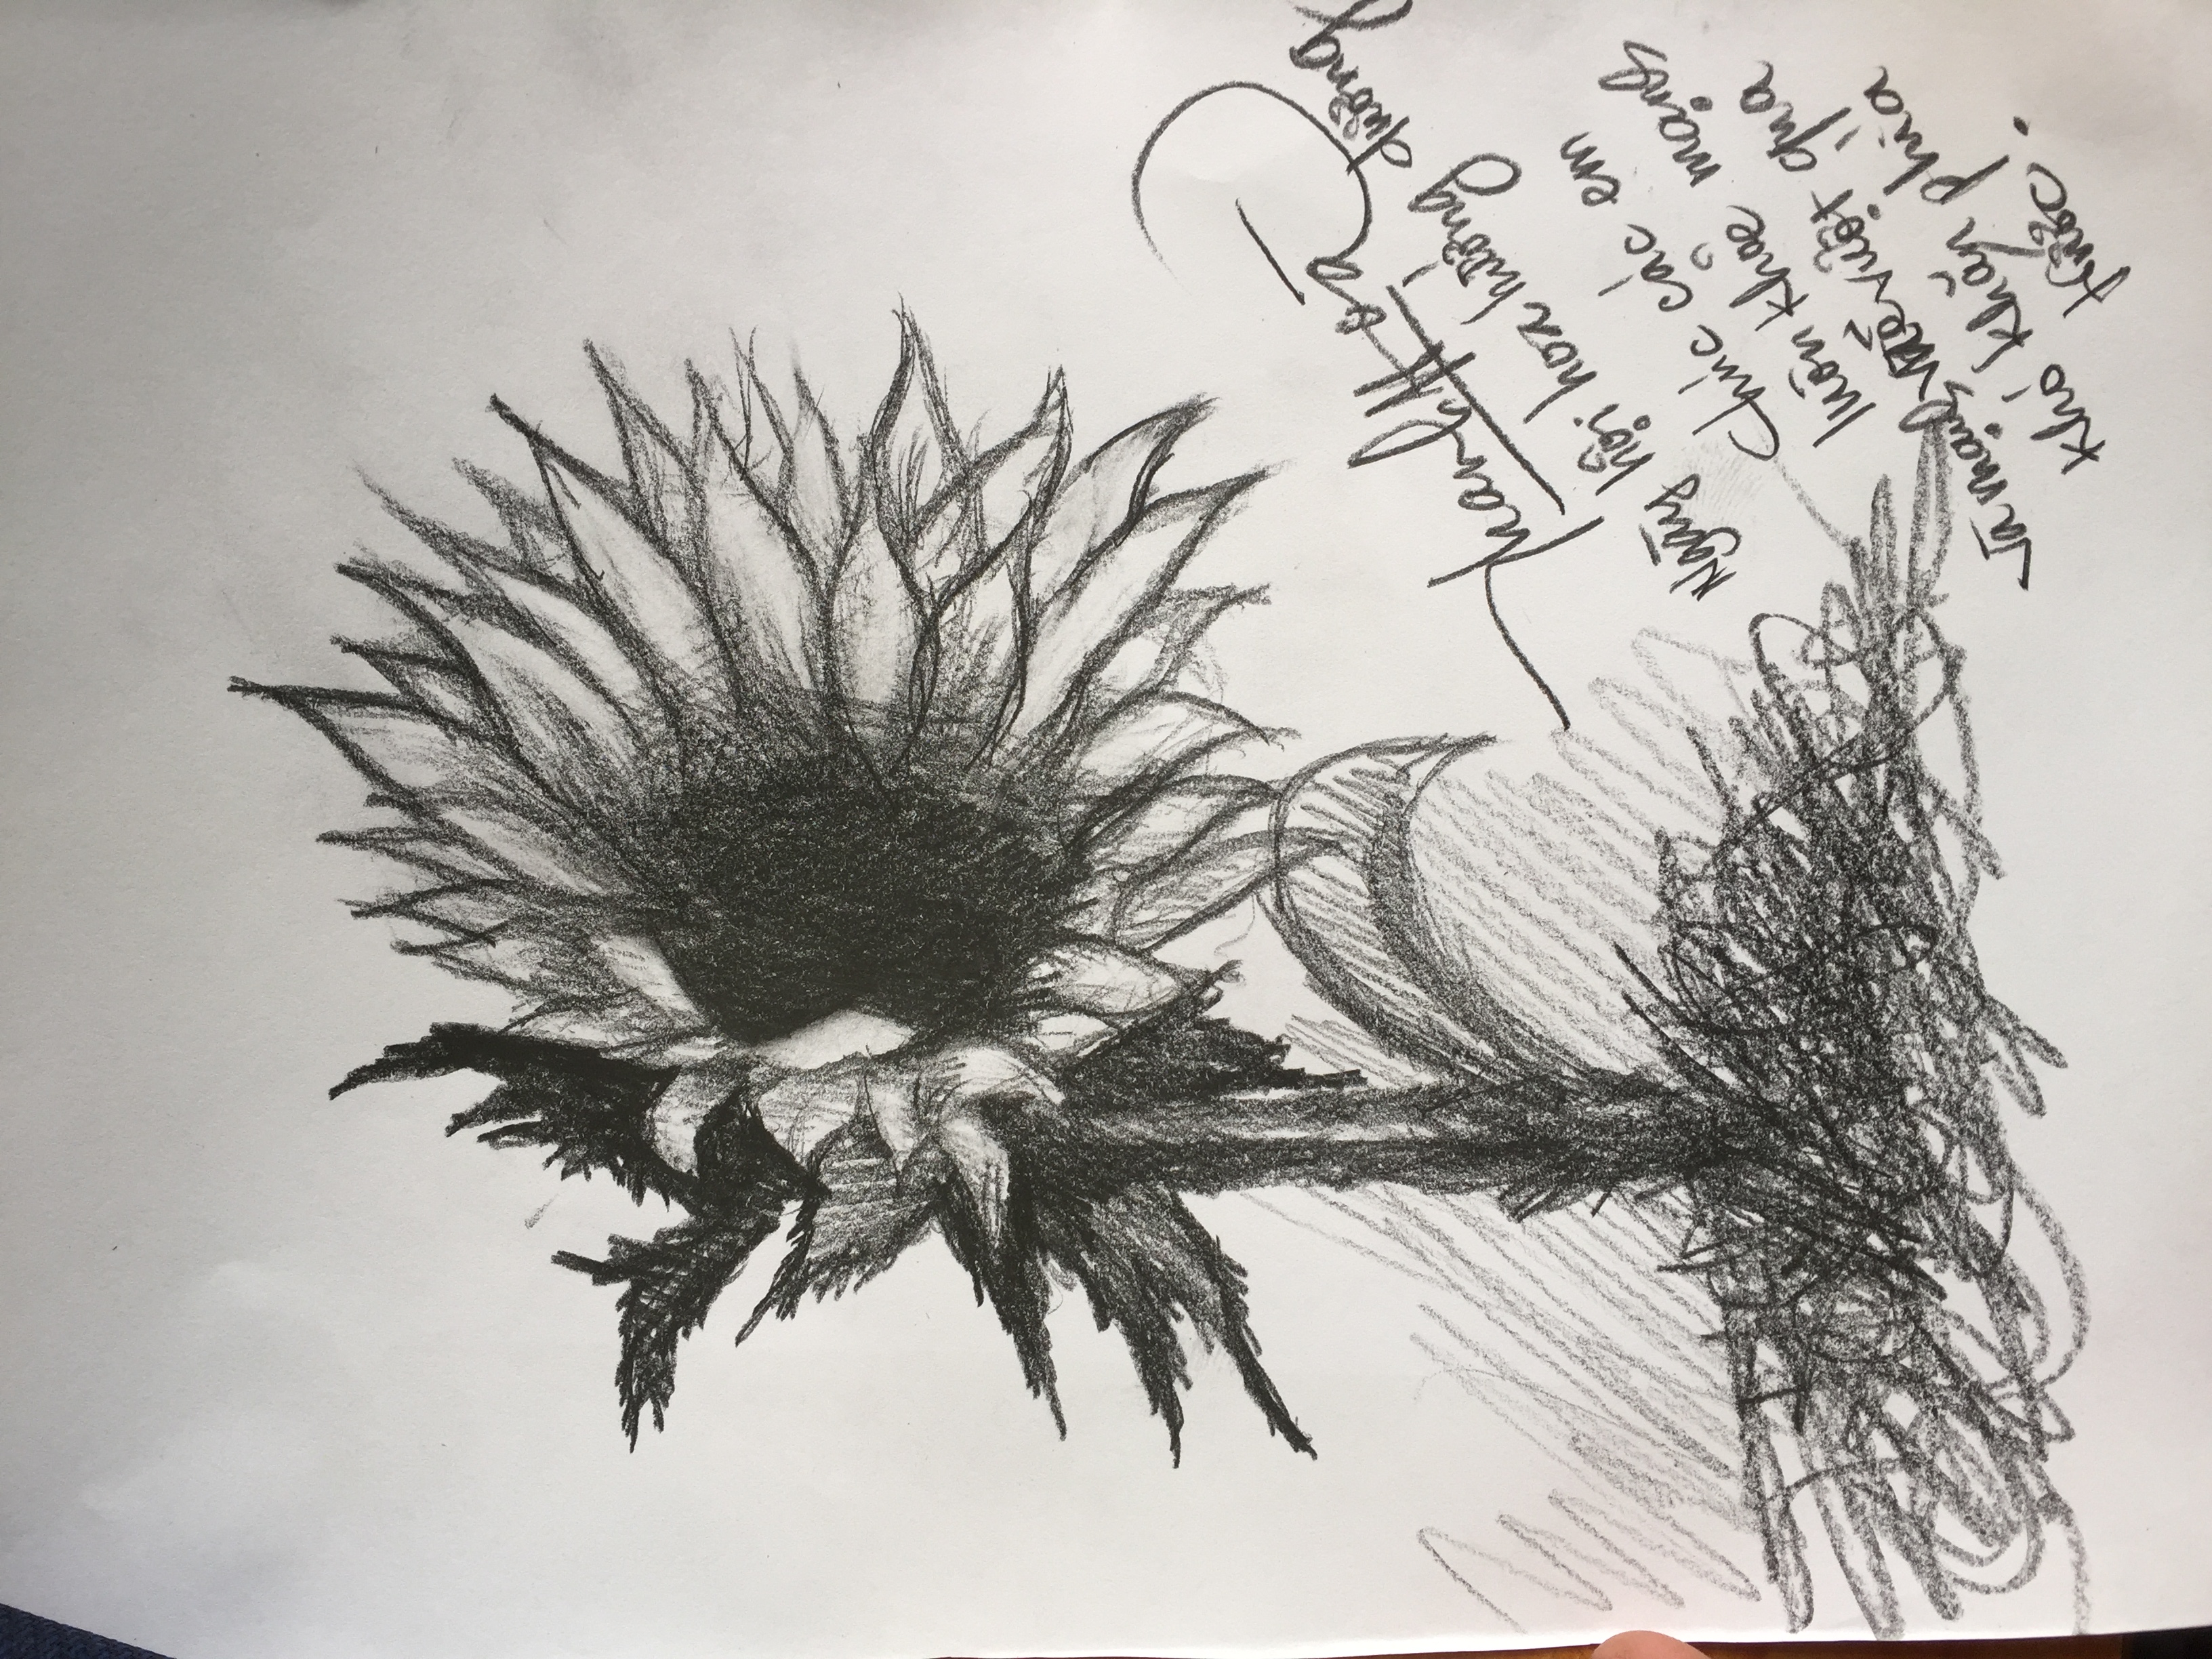 Thanh Hoà
Ngày hội hoa hướng dương
Chúc các em
luôn khoẻ mạnh
và mạnh mẽ vượt qua
khó khăn phía
trước.